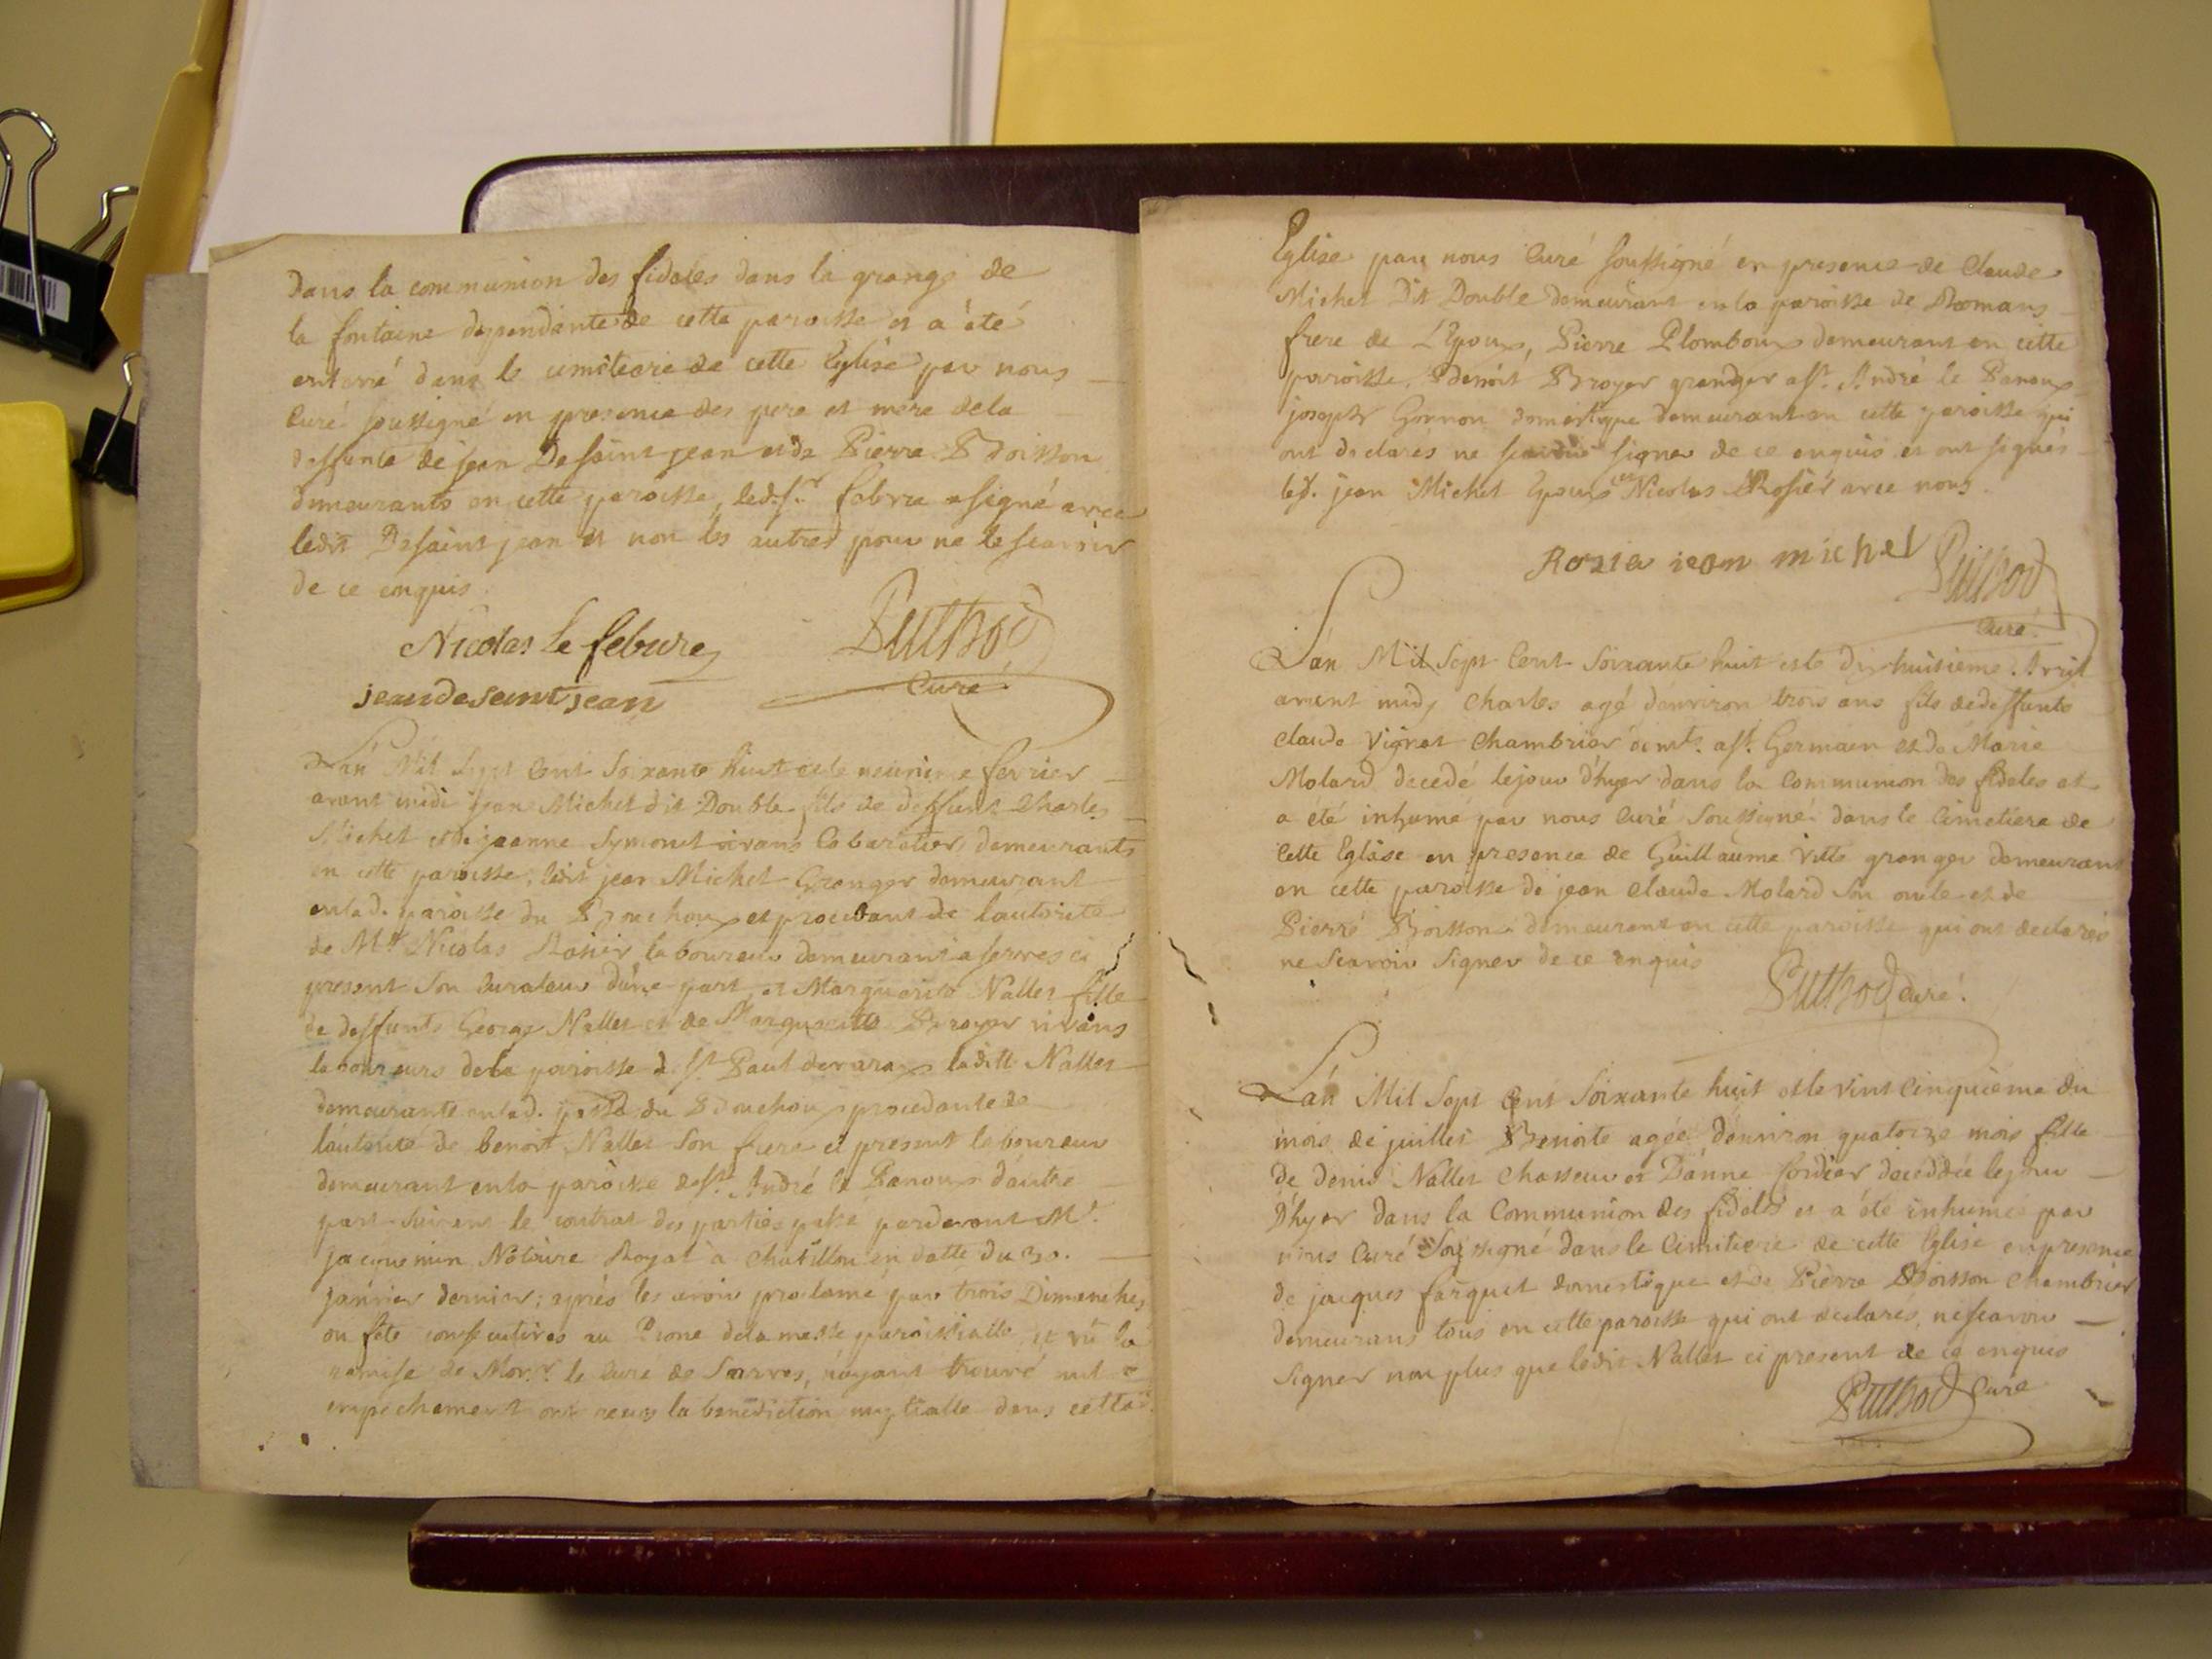 dans la communion des fideles dans la grange de
la fontaine dependante de cette paroisse et a été
enterré dans le cimitiere de cette Eglise par nous
Curé soussigné en presence des pere et mere de la
deffunte de jean Desaint jean et de Pierre Boisson
demeurants en cette paroisse, led. sr. febvre a signé avec
ledit Desaint jean et non les autres pour ne le scavoir
de ce enquis
Nicolas le febure
jean de saint jean
Puthod
Curé
L'an Mil Sept Cent Soixante huit et le neuvieme fevrier
avant midi jean Michel dit Double fils de deffunt Charles
Michel et de jeanne Symonet vivans Cabaretiers demeurants
en cette paroisse, ledit jean Michel Granger demeurant
en lad. paroisse du Bouchoux et procedant de l'autorité
de Mr Nicolas Rosier laboureur demeurant a serves ci
present Son Curateur d'une part, et Marguerite Nallet fille
de deffunts George Nallet et de Marguerite Broyer vivans
laboureurs de la paroisse de St. Paul de varax ladite Nallet
demeurante en lad. psse du Bouchoux procedante de
l'autorité de Benoit Nallet Son frere ci present laboureur
demeurant en la paroisse de St. André le Panoux d'autre
part Suivant le contrat des parties passé pardevant Me.
jacquemin Notaire Royal a Chatillon en datte du 30.
janvier dernier; après les avoir proclamé par trois Dimanches
ou fête consecutives au Prone de la messe paroissialle et vû la
remise de Monsr. le Curé de Sarves, n'ayant trouvé nul
empechement ont reçus la benediction nuptialle dans cette
Eglise par nous Curé soussigné en presence de Claude
Michel Dit Double demeurant en la paroisse de Romans
frere de L'Epoux, Pierre Plomboux demeurant en cette
paroisse. Benoit Broyer granger a St. André le Panoux
joseph Gonnon domestique demeurant en cette paroisse qui
ont declarés ne scavoir signer de ce enquis et ont signés
led. jean Michel Epoux et Nicolas Rosier avec nous
Rozier jean michel Puthod
Curé.
L'an Mil Sept Cent Soixante huit et le dix huitieme Avril
avant midy Charles agé d'environ trois ans fils de deffunts
claude Vignat Chambrier a St. Germain et de Marie
Molard decedé le jour d'hyer dans la Communion des fideles et
a été inhumé par nous Curé Soussigné dans le Cimetiere de
Cette Eglise en presence de Guillaume Vitte granger demeurant
en cette paroisse de jean Claude Molard Son oncle et de
Pierre Boisson demeurant en cette paroisse qui ont declarés
ne Scavoir Signer de ce enquis
Puthod Curé.
L'an Mil Sept Cent Soixante huit et le vint Cinquieme du
mois de juillet Benoite agée d'environ quatorze mois fille
de denis Nallet Chasseur et D'anne Cordier decedée le jour
D'hyer dans la Communion des fideles et a été inhumée par
nous Curé Soussigné dans le Cimitiere de cette Eglise en presence
de jacques farguet domestique et de Pierre Boisson Chambrier
demeurans tous en cette paroisse qui ont declarés, ne scavoir
Signer non plus que ledit Nallet ci present de ce enquis
Puthod Curé